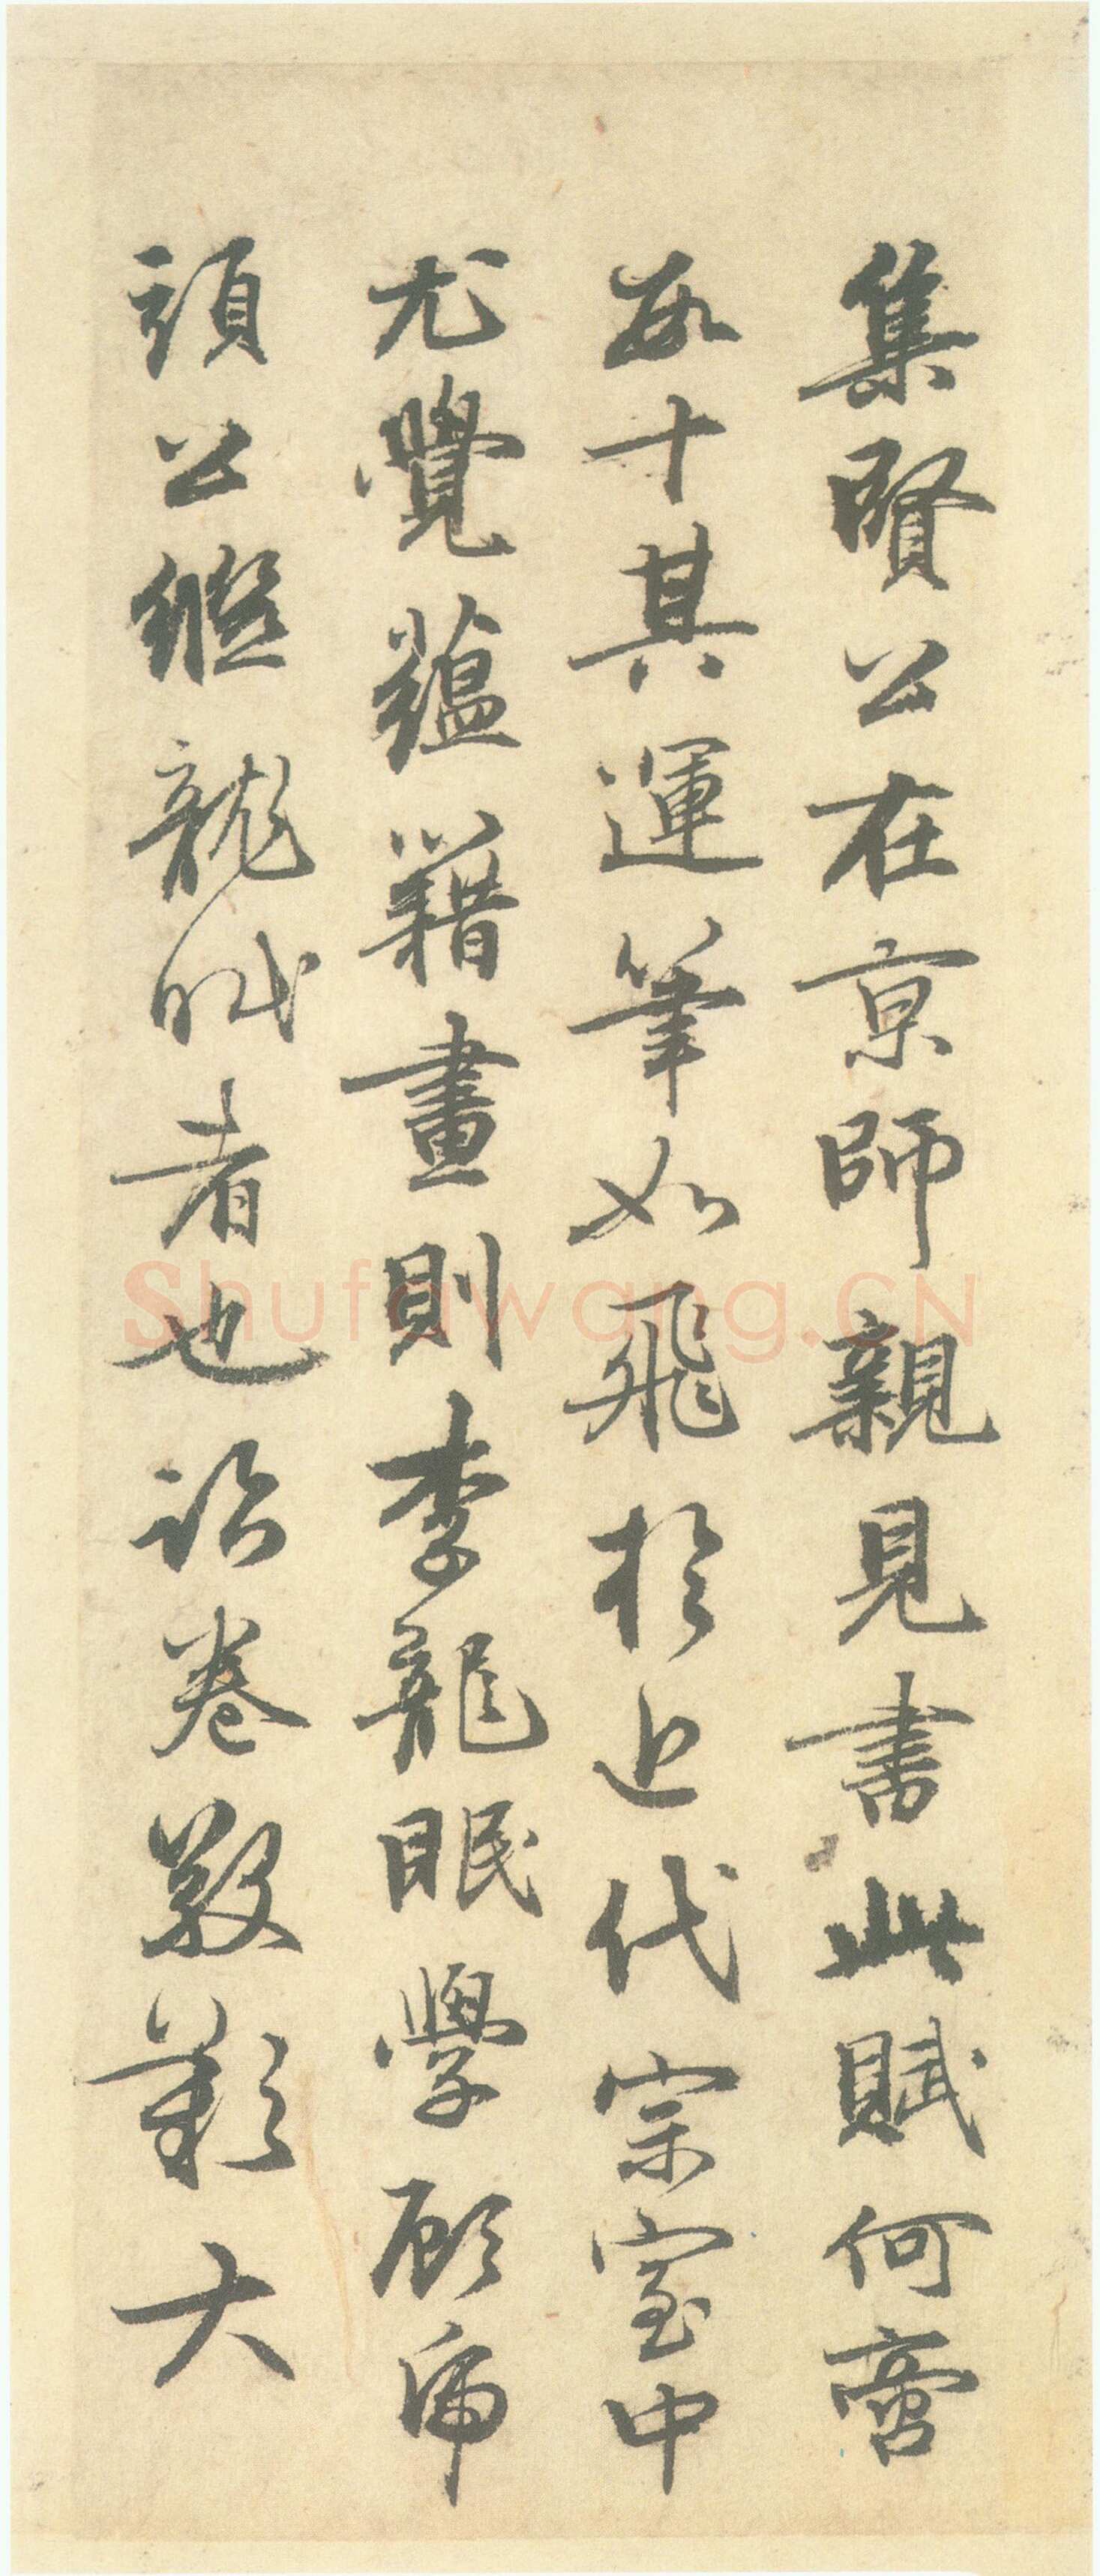 集賢公在京師親見書此賦何啻
數十其運筆如飛於近代宗室中
尤覺蘊籍畫則李龍眠學顧虎
頭公繼龍眠者也卷敬歎大
Shufawang.CN